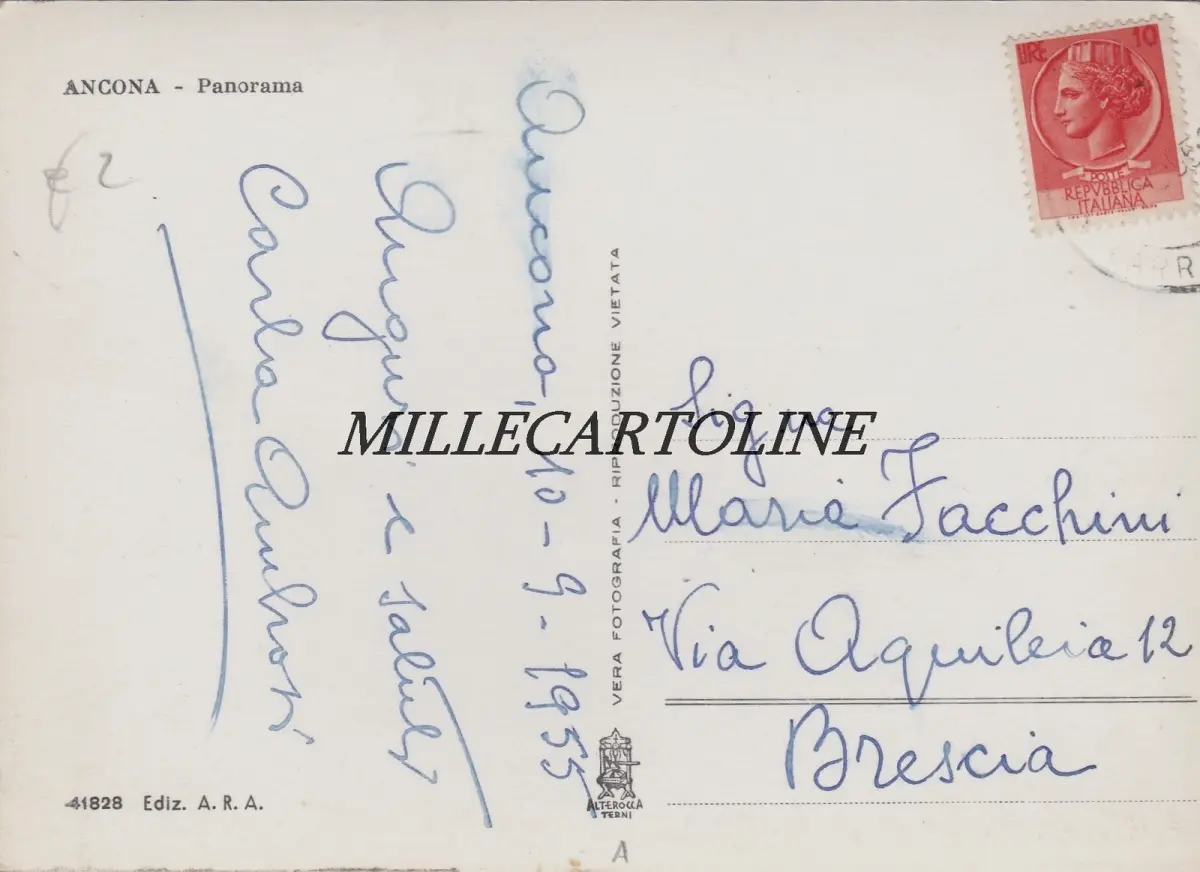 ANCONA - Panorama
£ 2
Ancona, 10-9-1955
Auguri e saluti
Carla Ambrosi
41828 Ediz. A. R. A.
VERA FOTOGRAFIA - RIPRODUZIONE VIETATA
ALTEROCCA
TERNI
A
LIRE 10
POSTE
REPVBBLICA
ITALIANA
Sig.na
Maria Facchini
Via Aquileia 12
Brescia
MILLECARTOLINE